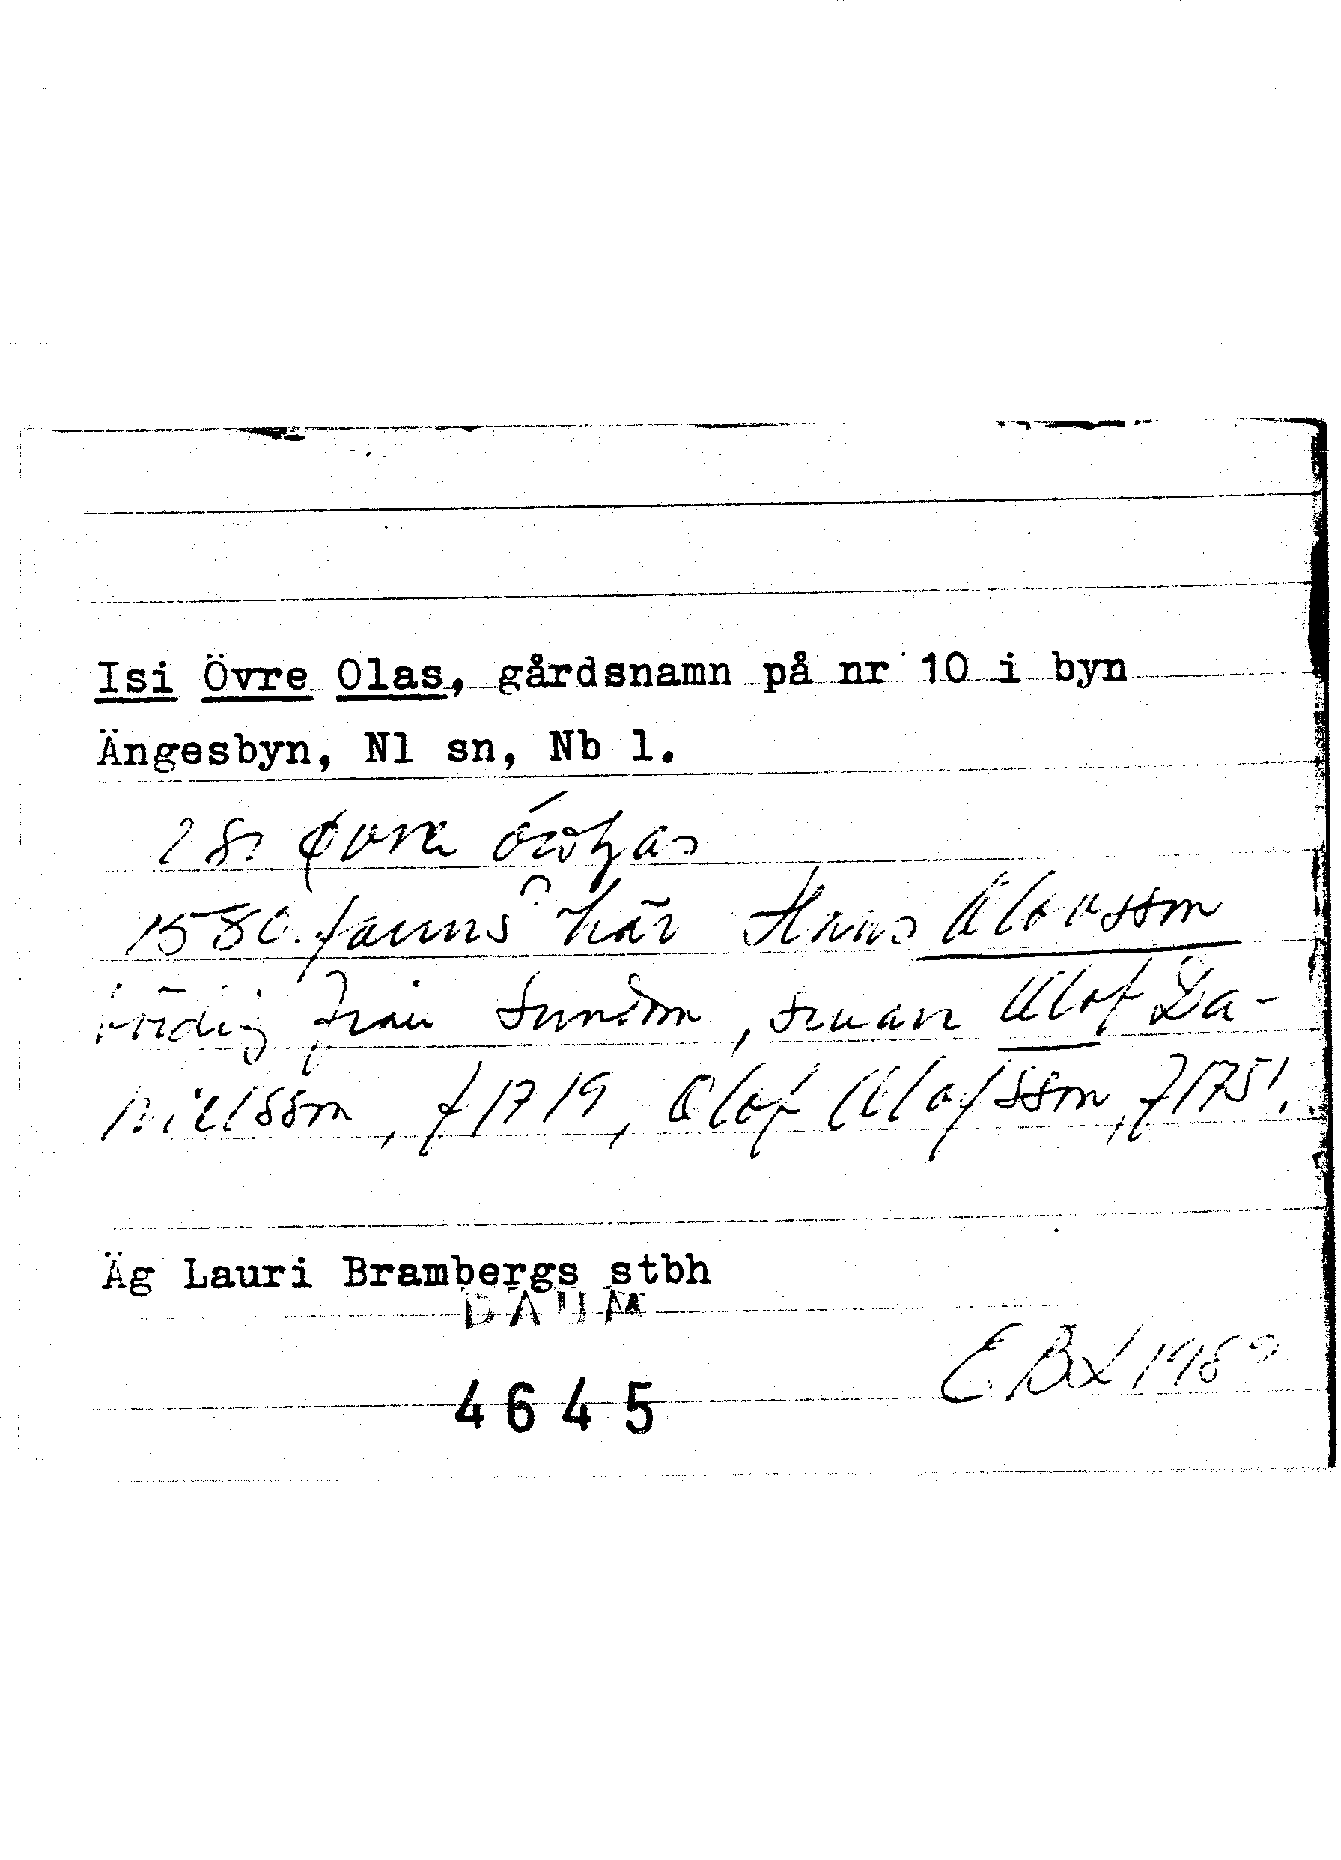 Isi Övre Olas, gårdsnamn på nr 10 i byn
Ängesbyn, Nl sn, Nb l.
1580 fanns här Hans Olovsson
bördig från Sundom, senare Olof Da-
nielsson, f 1719, Olof Olofsson, f 1751.
Äg Lauri Brambergs stbh
DAUM
4645
E Bd 1989